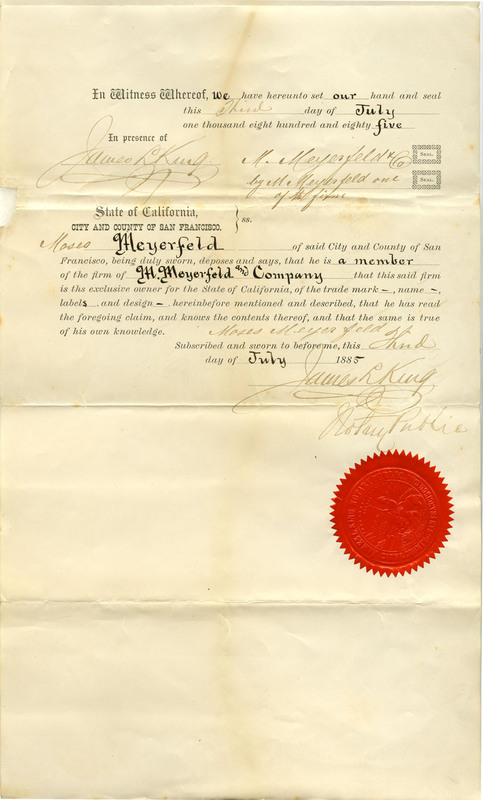 In Witness Whereof, we have hereunto set our hand and seal
this Third day of July
one thousand eight hundred and eighty five
In presence of
James L King
M. Meyerfeld & Co
SEAL.
by M Meyerfeld one
SEAL.
of the firm
State of California,
CITY AND COUNTY OF SAN FRANCISCO. } ss.
Moses Meyerfeld of said City and County of San
Francisco, being duly sworn, deposes and says, that he is a member
of the firm of M. Meyerfeld and Company that this said firm
is the exclusive owner for the State of California, of the trade mark –, name –,
labels and design – hereinbefore mentioned and described, that he has read
the foregoing claim, and knows the contents thereof, and that the same is true
of his own knowledge. Moses Meyerfeld
Subscribed and sworn to before me, this Third
day of July 1885
James L King
Notary Public